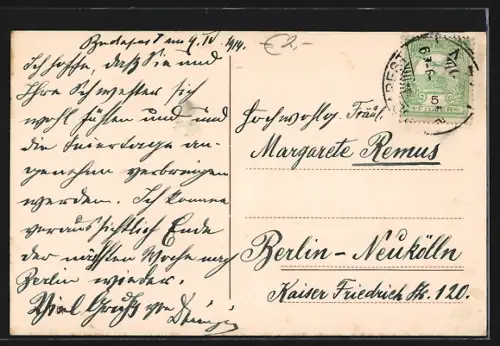 Budapest am 9. IV. 914.
€2,-
Ich hoffe, daß Sie und
Ihre Schwester sich
wohl fühlen und und
die Feiertage an-
genehm verbringen
werden. Ich komme
voraussichtlich Ende
der nächsten Woche nach
Berlin wieder.
Viel Grüße von
Hochwohlg. Fräul.
Margarete Remus
Berlin-Neukölln
Kaiser Friedrich Str. 120.
5